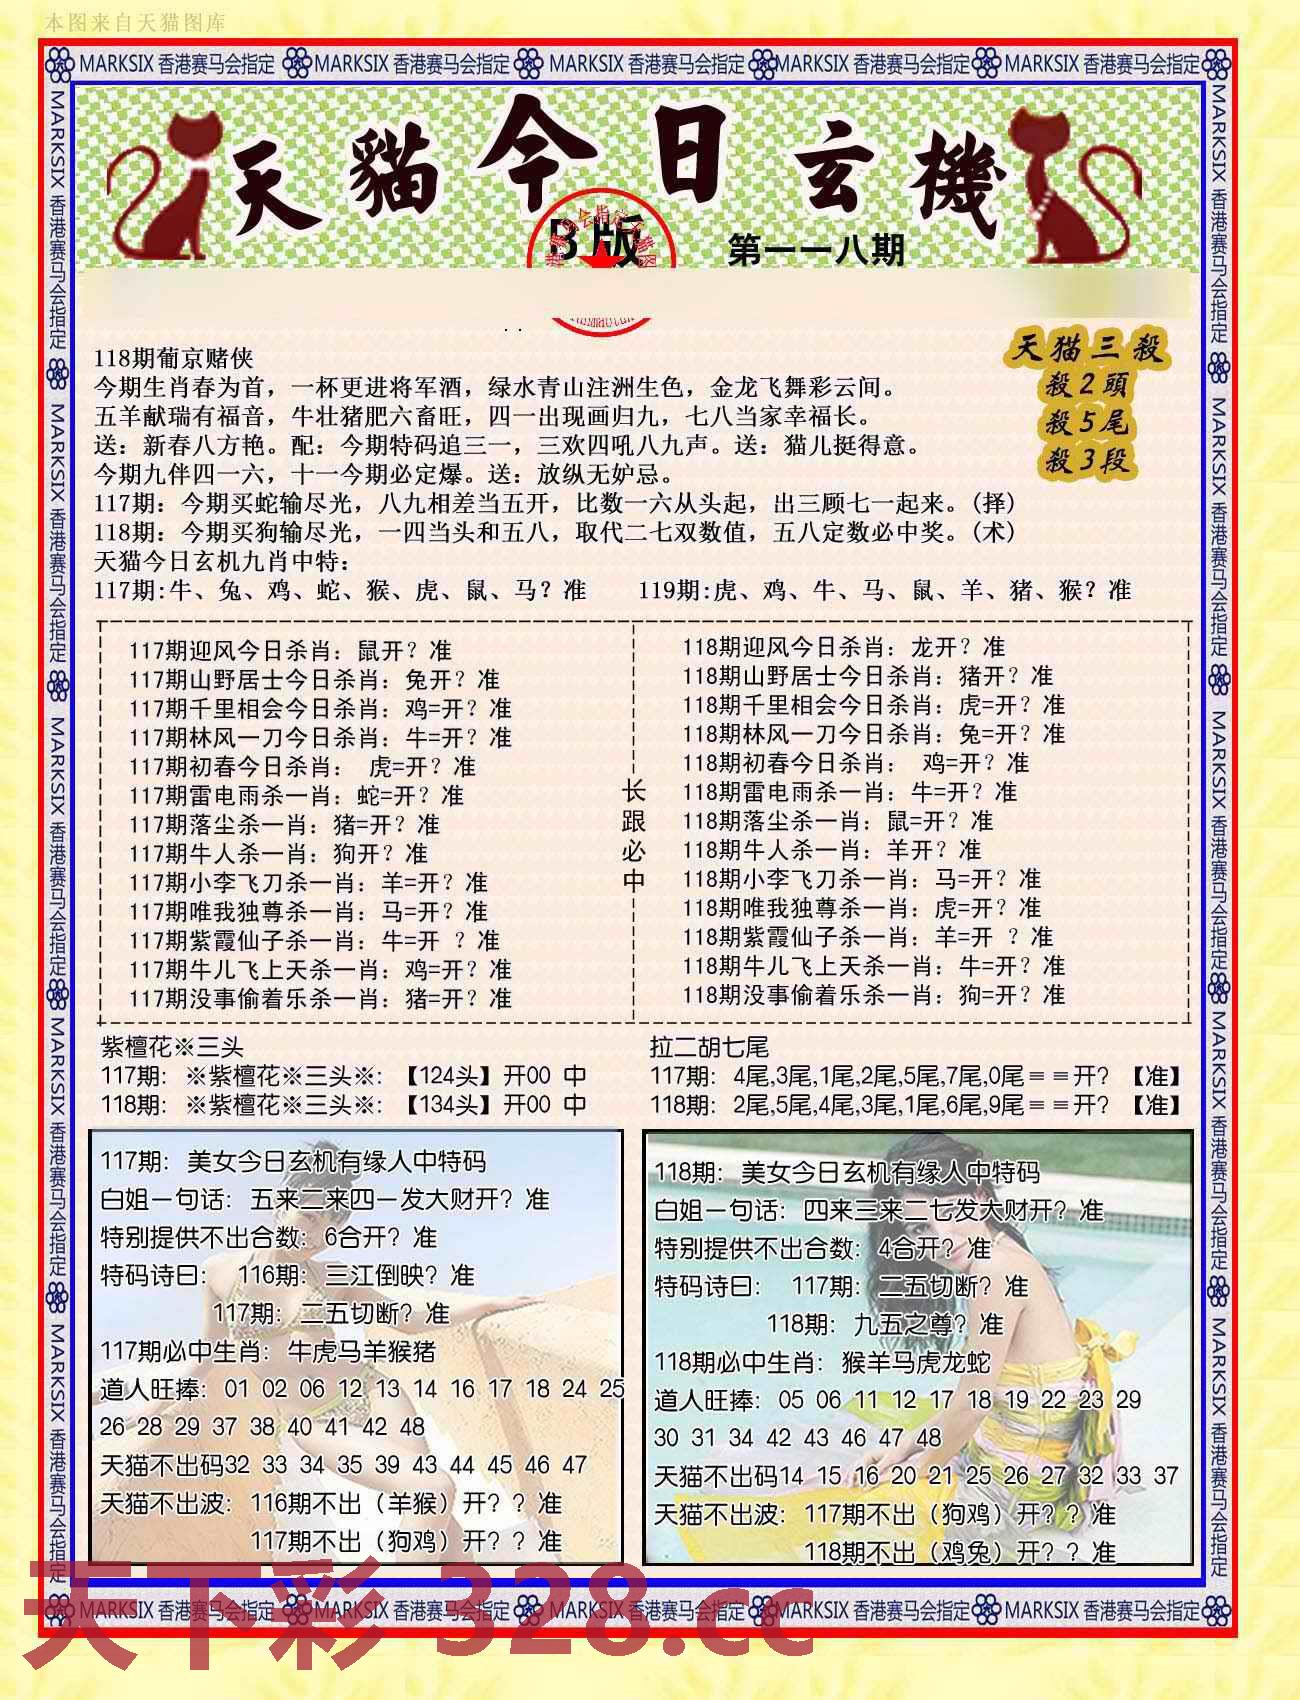 本图来自天猫图库
MARKSIX 香港赛马会指定 MARKSIX 香港赛马会指定 MARKSIX 香港赛马会指定 MARKSIX 香港赛马会指定 MARKSIX 香港赛马会指定
天貓今日玄機
B版
第一一八期
天猫三殺
殺2頭
殺5尾
殺3段
118期葡京赌侠
今期生肖春为首，一杯更进将军酒，绿水青山注洲生色，金龙飞舞彩云间。
五羊献瑞有福音，牛壮猪肥六畜旺，四一出现画归九，七八当家幸福长。
送：新春八方艳。配：今期特码追三一，三欢四吼八九声。送：猫儿挺得意。
今期九伴四一六，十一今期必定爆。送：放纵无妒忌。
117期：今期买蛇输尽光，八九相差当五开，比数一六从头起，出三顾七一起来。(择)
118期：今期买狗输尽光，一四当头和五八，取代二七双数值，五八定数必中奖。(术)
天猫今日玄机九肖中特：
117期:牛、兔、鸡、蛇、猴、虎、鼠、马？准 119期:虎、鸡、牛、马、鼠、羊、猪、猴？准
117期迎风今日杀肖：鼠开？准
117期山野居士今日杀肖：兔开？准
117期千里相会今日杀肖：鸡=开？准
117期林风一刀今日杀肖：牛=开？准
117期初春今日杀肖： 虎=开？准
117期雷电雨杀一肖：蛇=开？准
117期落尘杀一肖：猪=开？准
117期牛人杀一肖：狗开？准
117期小李飞刀杀一肖：羊=开？准
117期唯我独尊杀一肖：马=开？准
117期紫霞仙子杀一肖：牛=开 ？准
117期牛儿飞上天杀一肖：鸡=开？准
117期没事偷着乐杀一肖：猪=开？准
长跟必中
118期迎风今日杀肖：龙开？准
118期山野居士今日杀肖：猪开？准
118期千里相会今日杀肖：虎=开？准
118期林风一刀今日杀肖：兔=开？准
118期初春今日杀肖： 鸡=开？准
118期雷电雨杀一肖：牛=开？准
118期落尘杀一肖：鼠=开？准
118期牛人杀一肖：羊开？准
118期小李飞刀杀一肖：马=开？准
118期唯我独尊杀一肖：虎=开？准
118期紫霞仙子杀一肖：羊=开 ？准
118期牛儿飞上天杀一肖：牛=开？准
118期没事偷着乐杀一肖：狗=开？准
紫檀花※三头
117期：※紫檀花※三头※：【124头】开00 中
118期：※紫檀花※三头※：【134头】开00 中
拉二胡七尾
117期：4尾,3尾,1尾,2尾,5尾,7尾,0尾≡≡开？【准】
118期：2尾,5尾,4尾,3尾,1尾,6尾,9尾≡≡开？【准】
117期：美女今日玄机有缘人中特码
白姐一句话：五来二来四一发大财开？准
特别提供不出合数：6合开？准
特码诗曰： 116期：三江倒映？准
117期：二五切断？准
117期必中生肖：牛虎马羊猴猪
道人旺捧：01 02 06 12 13 14 16 17 18 24 25
26 28 29 37 38 40 41 42 48
天猫不出码32 33 34 35 39 43 44 45 46 47
天猫不出波：116期不出（羊猴）开？？准
117期不出（狗鸡）开？？准
118期：美女今日玄机有缘人中特码
白姐一句话：四来三来二七发大财开？准
特别提供不出合数：4合开？准
特码诗曰： 117期：二五切断？准
118期：九五之尊？准
118期必中生肖：猴羊马虎龙蛇
道人旺捧：05 06 11 12 17 18 19 22 23 29
30 31 34 42 43 46 47 48
天猫不出码14 15 16 20 21 25 26 27 32 33 37
天猫不出波：117期不出（狗鸡）开？？准
118期不出（鸡兔）开？？准
MARKSIX 香港赛马会指定 MARKSIX 香港赛马会指定 MARKSIX 香港赛马会指定 MARKSIX 香港赛马会指定 MARKSIX 香港赛马会指定
MARKSIX 香港赛马会指定 MARKSIX 香港赛马会指定 MARKSIX 香港赛马会指定 MARKSIX 香港赛马会指定 MARKSIX 香港赛马会指定
MARKSIX 香港赛马会指定 MARKSIX 香港赛马会指定 MARKSIX 香港赛马会指定 MARKSIX 香港赛马会指定 MARKSIX 香港赛马会指定
天下彩 328.cc